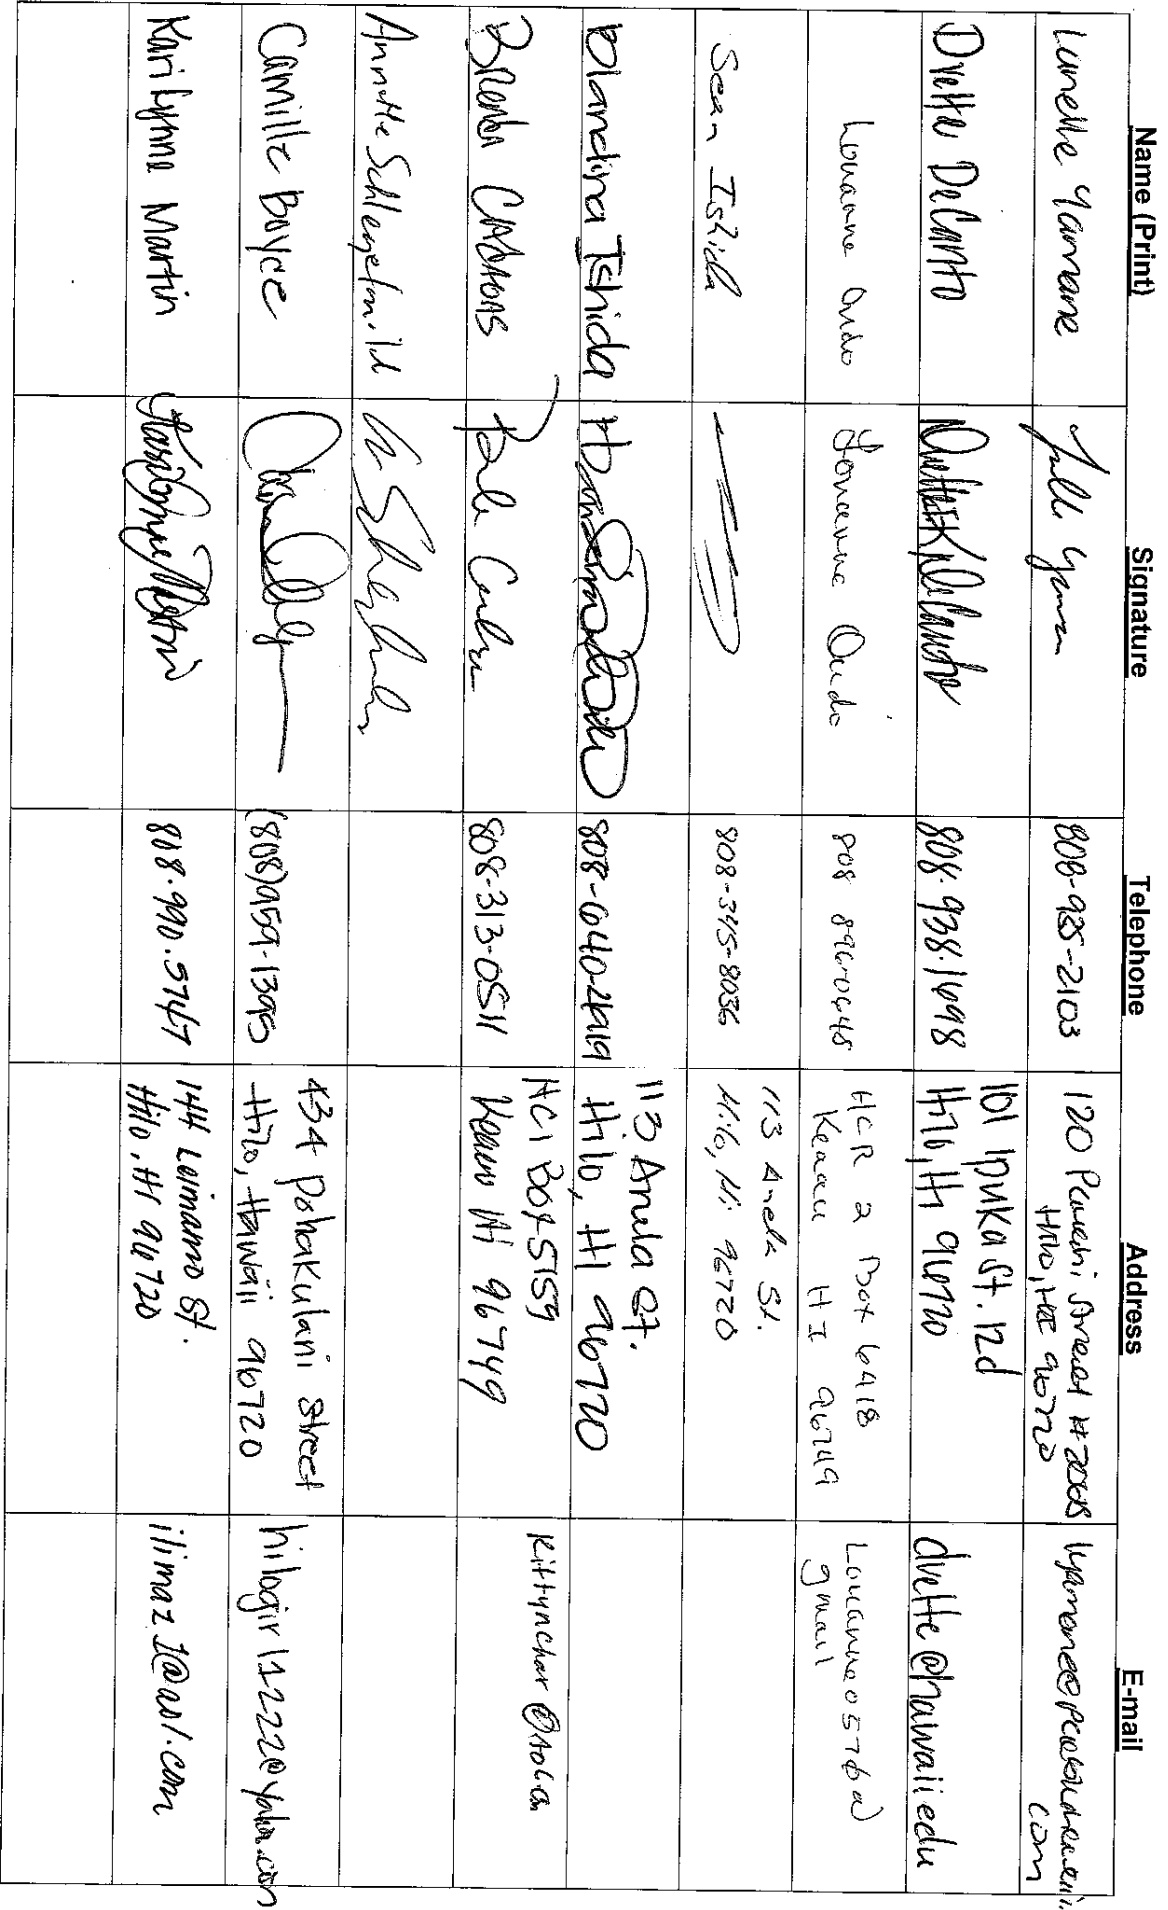 Name (Print) Signature Telephone Address E-mail
Lunelle Yamane 808-935-2103 120 Pauahi Street #
Hilo, HI 96720
com
Dvette DeCanto 808.938.1698 101 Ipuka St. 12d
Hilo, HI 96720 dvette@hawaii.edu
Louanne Oudo Louanne Oudo 808 896-0648 HCR 2 Box 6918
Keaau HI 96749 Louanne0576@
gmail
Sean Ishida 808-345-8036 113 Anela St.
Hilo, Hi 96720
Blandina Ishida 808-640-2419 113 Anela St.
Hilo, HI 96720
Brenda 808-313-0511 HC1 Box 5159
Keaau HI 96749 Kittynchar@aol.com
Annette
Camille Boyce (808)959-1395 434 Pohakulani Street
Hilo, Hawaii 96720 hilogirl1222@yahoo.com
Kari Lynne Martin 808.990.5767 144 Laimana St.
Hilo, HI 96720 ilima21@aol.com